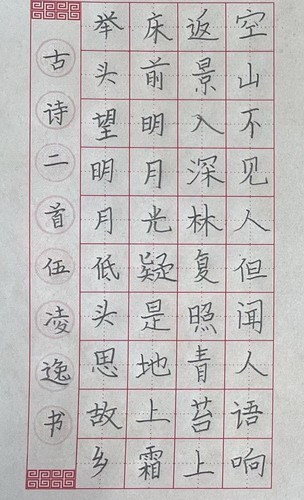 空山不见人但闻人语响
返景入深林复照青苔上
床前明月光疑是地上霜
举头望明月低头思故乡
古诗二首伍凌逸书